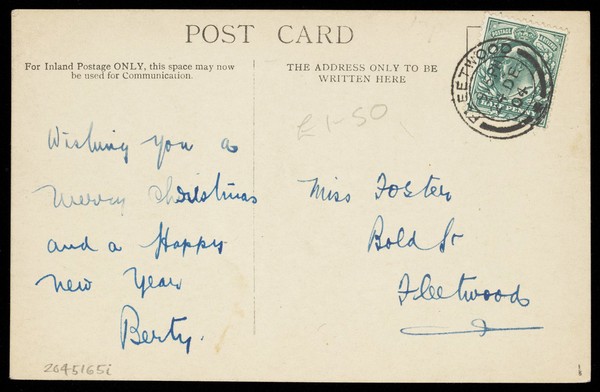 POST CARD
For Inland Postage ONLY, this space may now
be used for Communication.
THE ADDRESS ONLY TO BE
WRITTEN HERE
FLEETWOOD
DE
04
POSTAGE
HALF PENNY
£1-50
Wishing you a
Merry Christmas
and a Happy
New Year
Berty.
Miss Foster
Bold St
Fleetwood
2645165i